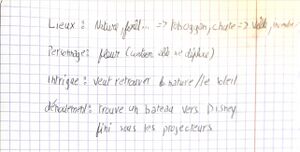 Lieux : Nature, forêt... => toboggan, chute =>
Personnage : fleur ( elle se déplace)
intrigue : veut retrouver la nature / le soleil
dénouement : trouve un bateau vers Disney
fini sous les projecteurs